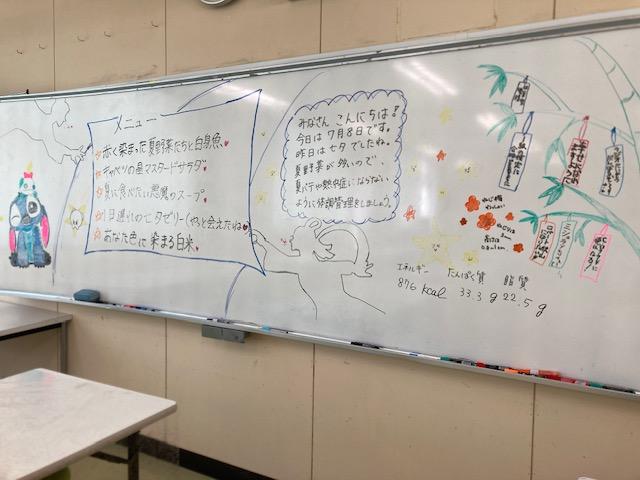 メニュー
赤く染まった夏野菜たちと白身魚
キャベツの星マスタードサラダ
夏に食べたい悪魔のスープ
1日遅れの七夕ゼリー(やっと会えたね)
あなた色に染まる白米
みなさん こんにちは!
今日は7月8日です。
昨日は七夕でしたね。
夏野菜が多いので、
夏バテや熱中症にならない
ように体調管理をしましょう。
エネルギー たんぱく質 脂質
876 kcal 33.3 g 22.5 g